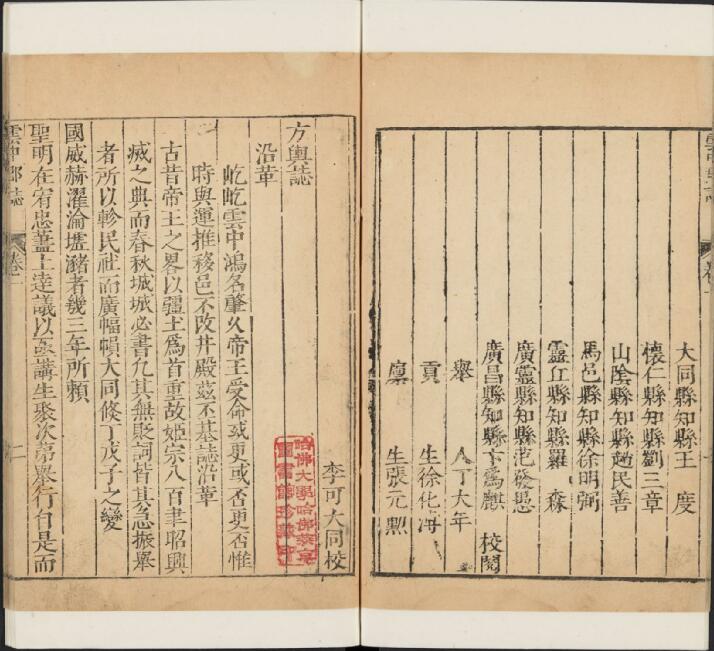 大同縣知縣王　度
懷仁縣知縣劉三章
山陰縣知縣趙民善
馬邑縣知縣徐明弼
靈丘縣知縣羅　森
廣靈縣知縣范發愚
廣昌縣知縣卞為麒　校閱
舉　人丁大年
貢　生徐化海
廩　生張元勲
李可大同校
哈佛大學哈佛燕京
圖書館珍藏印
方輿誌
沿革
屹屹雲中鴻名肇久帝王受命或更或否更否惟
時與運推移邑不改井殿茲丕基誌沿革
古昔帝王之畧以疆土為首重故姬宗八百聿昭興
烕之典而春秋城城必書凢其無貶詞皆其亟振舉
者所以軫民社而廣幅幀大同條丁戊子之變
國威赫濯淪壥瀦者㡬三年所賴
聖明在宥忠藎上逹議以亟講生聚次第舉行自是而
雲中郡誌
卷一
二